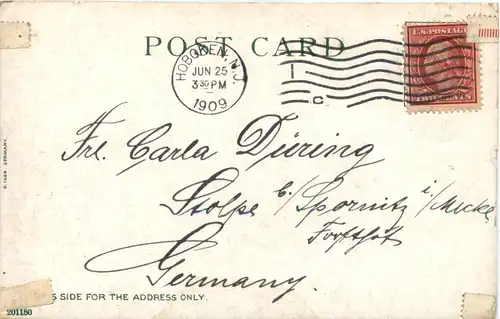 POST CARD
HOBOKEN, N.J.
JUN 25
3 30 PM
1909
1
C
U.S. POSTAGE
TWO CENTS
Frl. Carla Düring
Stolpe b/Spornitz i/Meckl
Forsthof
Germany.
S SIDE FOR THE ADDRESS ONLY.
201180